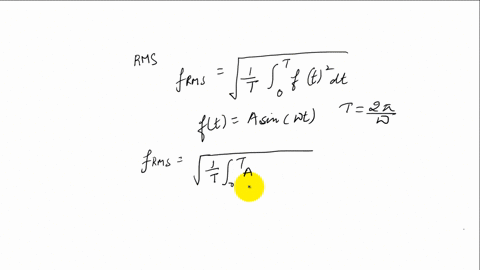 RMS
f_RMS = √(1/T ∫_0^T f(t)² dt)
f(t) = A sin(ωt) T = 2π/ω
f_RMS = √(1/T ∫_0^T A